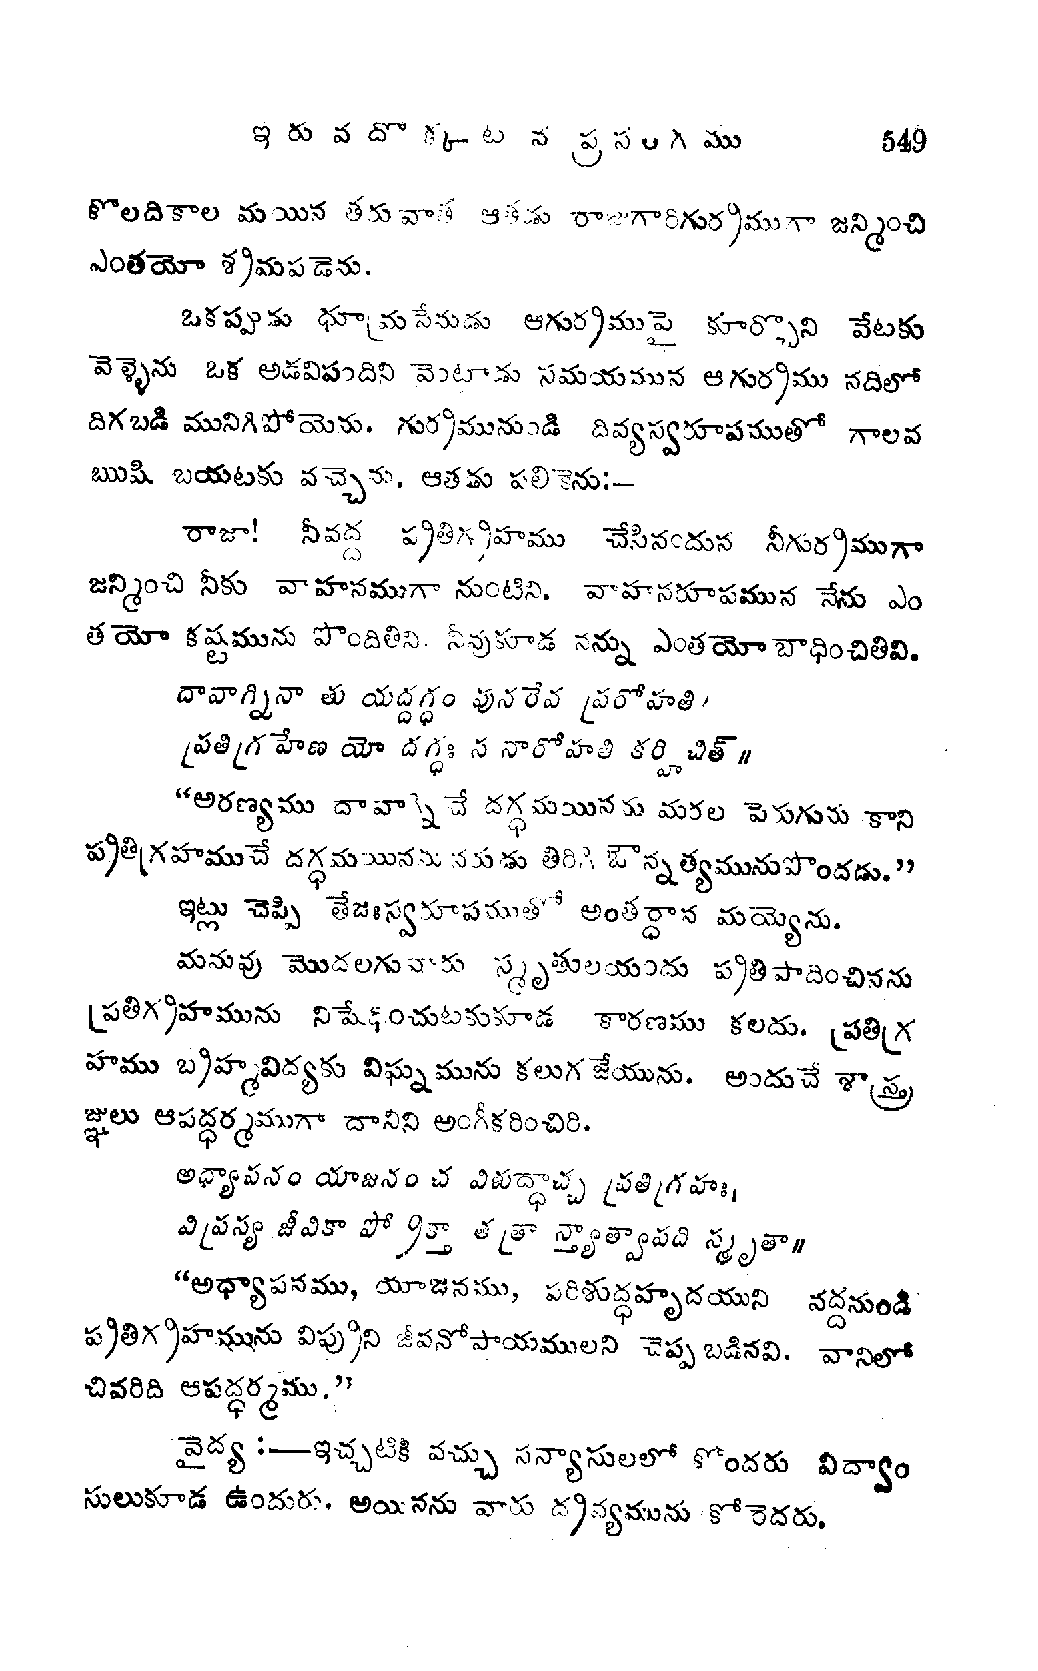 ఇరువదొక్కటన ప్రసంగము 549
కొలదికాల మయిన తరువాత ఆతడు రాజుగారిగుర్రముగా జన్మించి
ఎంతయో శ్రమపడెను.
ఒకప్పుడు ధూమ్రసేనుడు ఆగుర్రముపై కూర్చొని వేటకు
వెళ్ళెను ఒక అడవిపందిని వెంటాడు సమయమున ఆగుర్రము నదిలో
దిగబడి మునిగిపోయెను. గుర్రమునుండి దివ్యస్వరూపముతో గాలవ
ఋషి బయటకు వచ్చెను. ఆతడు పలికెను:—
రాజా! నీవద్ద ప్రతిగ్రహము చేసినందున నీగుర్రముగా
జన్మించి నీకు వాహనముగా నుంటిని. వాహనరూపమున నేను ఎం
తయో కష్టమును పొందితిని. నీవుకూడ నన్ను ఎంతయో బాధించితివి.
దావాగ్నినా తు యద్దగ్ధం పునరేవ ప్రరోహతి।
ప్రతిగ్రహేణ యో దగ్ధః స నారోహతి కర్హి చిత్॥
“అరణ్యము దావాగ్నిచే దగ్ధమయినను మరల పెరుగును కాని
ప్రతిగ్రహముచే దగ్ధమయినమనుడు తిరిగి ఔన్నత్యమునుపొందడు.”
ఇట్లు చెప్పి తేజఃస్వరూపముతో అంతర్ధాన మయ్యెను.
మనువు మొదలగువారు స్మృతులయందు ప్రతిపాదించినను
ప్రతిగ్రహమును నిషేధించుటకుకూడ కారణము కలదు. ప్రతిగ్ర
హము బ్రహ్మవిద్యకు విఘ్నమును కలుగజేయును. అందుచే శాస్త్ర
జ్ఞులు ఆపద్ధర్మముగా దానిని అంగీకరించిరి.
అధ్యాపనం యాజనం చ విశుద్ధాచ్చ ప్రతిగ్రహః,
విప్రస్య జీవికా ప్రోక్తా తత్రా న్త్యాత్వాపది స్మృతా॥
“అధ్యాపనము, యాజనము, పరిశుద్ధహృదయుని వద్దనుండి
ప్రతిగ్రహమును విప్రుని జీవనోపాయములని చెప్పబడినవి. వానిలో
చివరిది ఆపద్ధర్మము.”
వైద్య :—ఇచ్చటికి వచ్చు సన్యాసులలో కొందరు విద్వాం
సులుకూడ ఉందురు. అయినను వారు ద్రవ్యమును కోరెదరు.